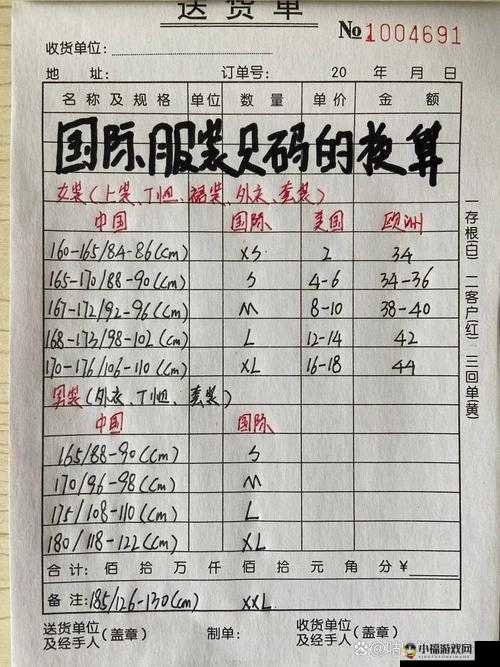 送货单
№1004691
收货单位:
地 址: 订单号: 20 年 月 日
名称及规格 单位 数量 单价 金额
国际服装尺码的换算
女装(上装、T恤、裙装、外衣、套装)
中国 国际 美国 欧洲
160-165/84-86(cm) XS 2 34
165-170/88-90(cm) S 4-6 34-36
167-172/92-96(cm) M 8-10 38-40
168-173/98-102(cm) L 12-14 42
170-176/106-110(cm) XL 16-18 44
男装(外衣、T恤、套装)
中国 国际
165/88-90(cm) S
170/96-98(cm) M
175/108-110(cm) L
180/118-122(cm) XL
合计: 佰 拾 万 仟 佰 拾 元 角 分 ¥
备注: 185/126-130(cm) XXL
送货单位及经手人(盖章) 制单: 收货单位及经手人(盖章)
一存根(白) 二客户(红) 三回单(黄)
小福游戏网